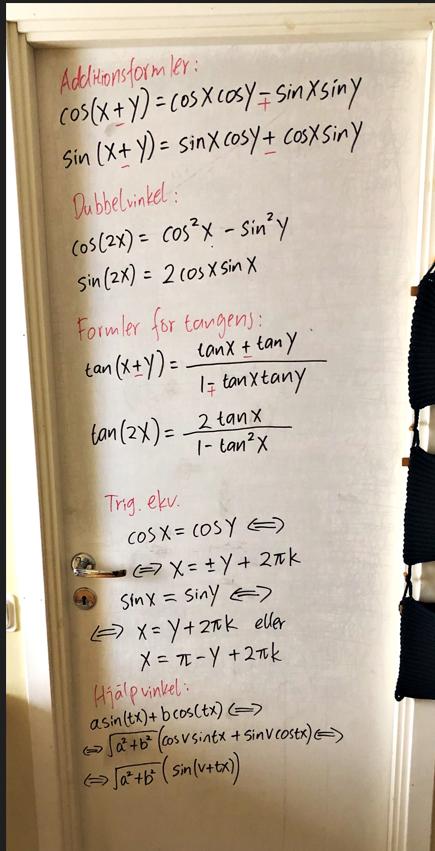 Additionsformler:
cos(x±y) = cosx cosy ∓ sinx siny
sin(x±y) = sinx cosy ± cosx siny
Dubbelvinkel:
cos(2x) = cos²x - sin²y
sin(2x) = 2cosx sinx
Formler för tangens:
tan(x±y) = (tanx ± tany) / (1 ∓ tanx tany)
tan(2x) = (2 tanx) / (1 - tan²x)
Trig. ekv.
cosx = cosy ⟺
⟺ x = ±y + 2πk
sinx = siny ⟺
⟺ x = y + 2πk eller
x = π - y + 2πk
Hjälpvinkel:
asin(tx) + bcos(tx) ⟺
⟺ √(a²+b²) (cosv sintx + sinv costx) ⟺
⟺ √(a²+b²) (sin(v+tx))